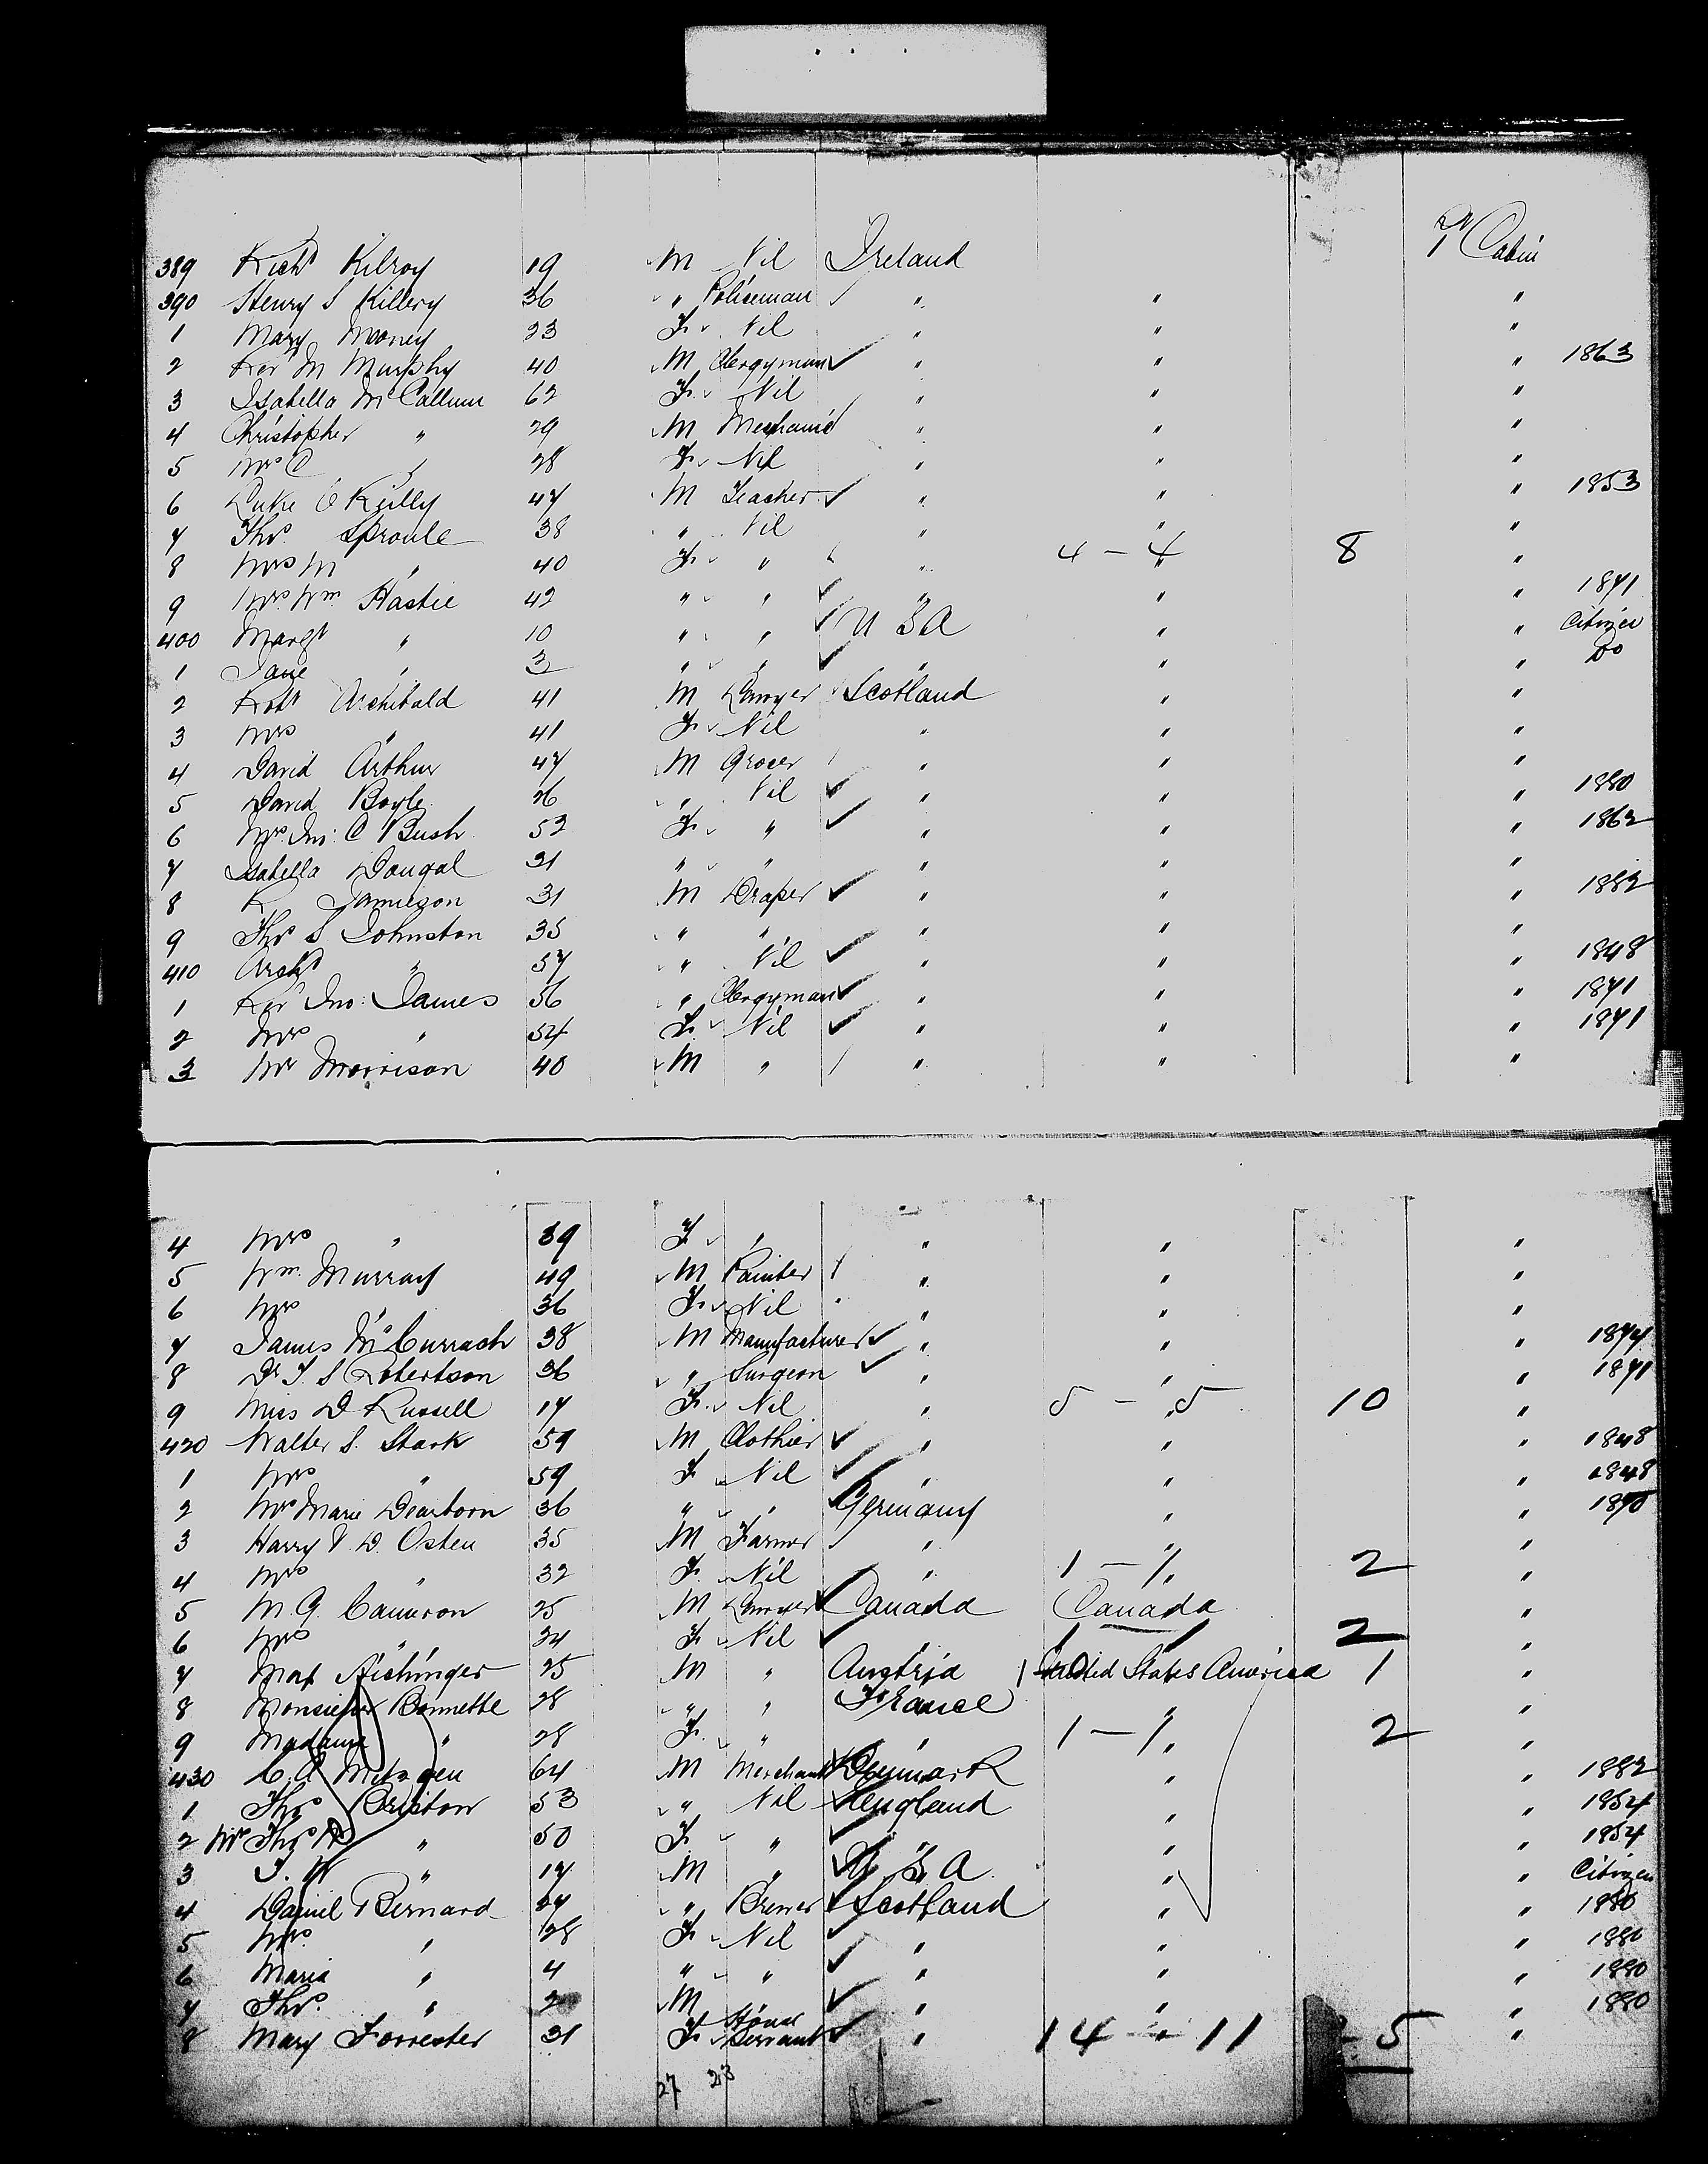 2nd Cabin
389 Richd Kilroy 19 M Nil Ireland
390 Henry S Killery 36 " Policeman " " "
1 Mary Mooney 23 F Nil " " "
2 Rev M Murphy 40 M Clergyman " " " 1863
3 Isabella McCallum 62 F Nil " " "
4 Christopher " 29 M Mechanic " " "
5 Mrs C " 28 F Nil " " "
6 Luke O'Reilly 47 M Teacher " " " 1853
7 Thos Sproule 38 " Nil " " "
8 Mrs M " 40 F " " 4 - 4 " 8 "
9 Mrs Wm Hastie 42 " " " " " 1871
400 Margt " 10 " " U S A " " Citizen
1 Jane " 3 " " " " " Do
2 Robt Archibald 41 M Lawyer Scotland " "
3 Mrs " 41 F Nil " " "
4 David Arthur 47 M Grocer " " "
5 David Boyle 26 " Nil " " " 1880
6 Mrs Jno: C Bush 52 F " " " " 1862
7 Isabella Dougal 21 " " " " "
8 R Jamieson 31 M Draper " " " 1882
9 Thos S Johnston 35 " " " " "
410 Archd " 57 " Nil " " " 1848
1 Rev Jno: James 56 " Clergyman " " " 1871
2 Mrs " 54 F Nil " " " 1871
3 Mr Morrison 40 M " " " "
4 Mrs " 39 F " " " "
5 Wm. Murray 49 M Painter " " "
6 Mrs " 36 F Nil " " "
7 James McCurrach 38 M Manufacturer " " " 1874
8 Dr J. S Robertson 36 " Surgeon " " " 1871
9 Miss D Russell 17 F Nil " 5 - 5 " 10 "
420 Walter S. Stark 59 M Clothier " " " 1848
1 Mrs " 59 F Nil " " " 1848
2 Mrs Marie Dearborn 36 " " Germany " " 1870
3 Harry V. D. Osten 35 M Farmer " " "
4 Mrs " 32 F Nil " 1 - 1 " 2 "
5 M. G. Cameron 25 M Lawyer Canada Canada "
6 Mrs " 24 F Nil " 1 1 2 "
7 Max Aichinger 25 M " Austria 1 United States America 1 "
8 Monsieur Bonnette 28 " " France " "
9 Madame " 28 F " " 1 - 1 " 2 "
430 C. A Metzgen 64 M Merchant Denmark " " 1882
1 Thos Briston 53 " Nil England " " 1854
2 Mrs Thos " 50 F " " " " 1854
3 J. W " 17 M " U S A " " Citizen
4 Daniel Bernard 27 " Brewer Scotland " " 1880
5 Mrs " 28 F Nil " " " 1880
6 Maria " 4 " " " " " 1880
7 Thos. " 2 M " " " 1880
8 Mary Forrester 31 F House Servant " 14 - 11 5 "
27 23